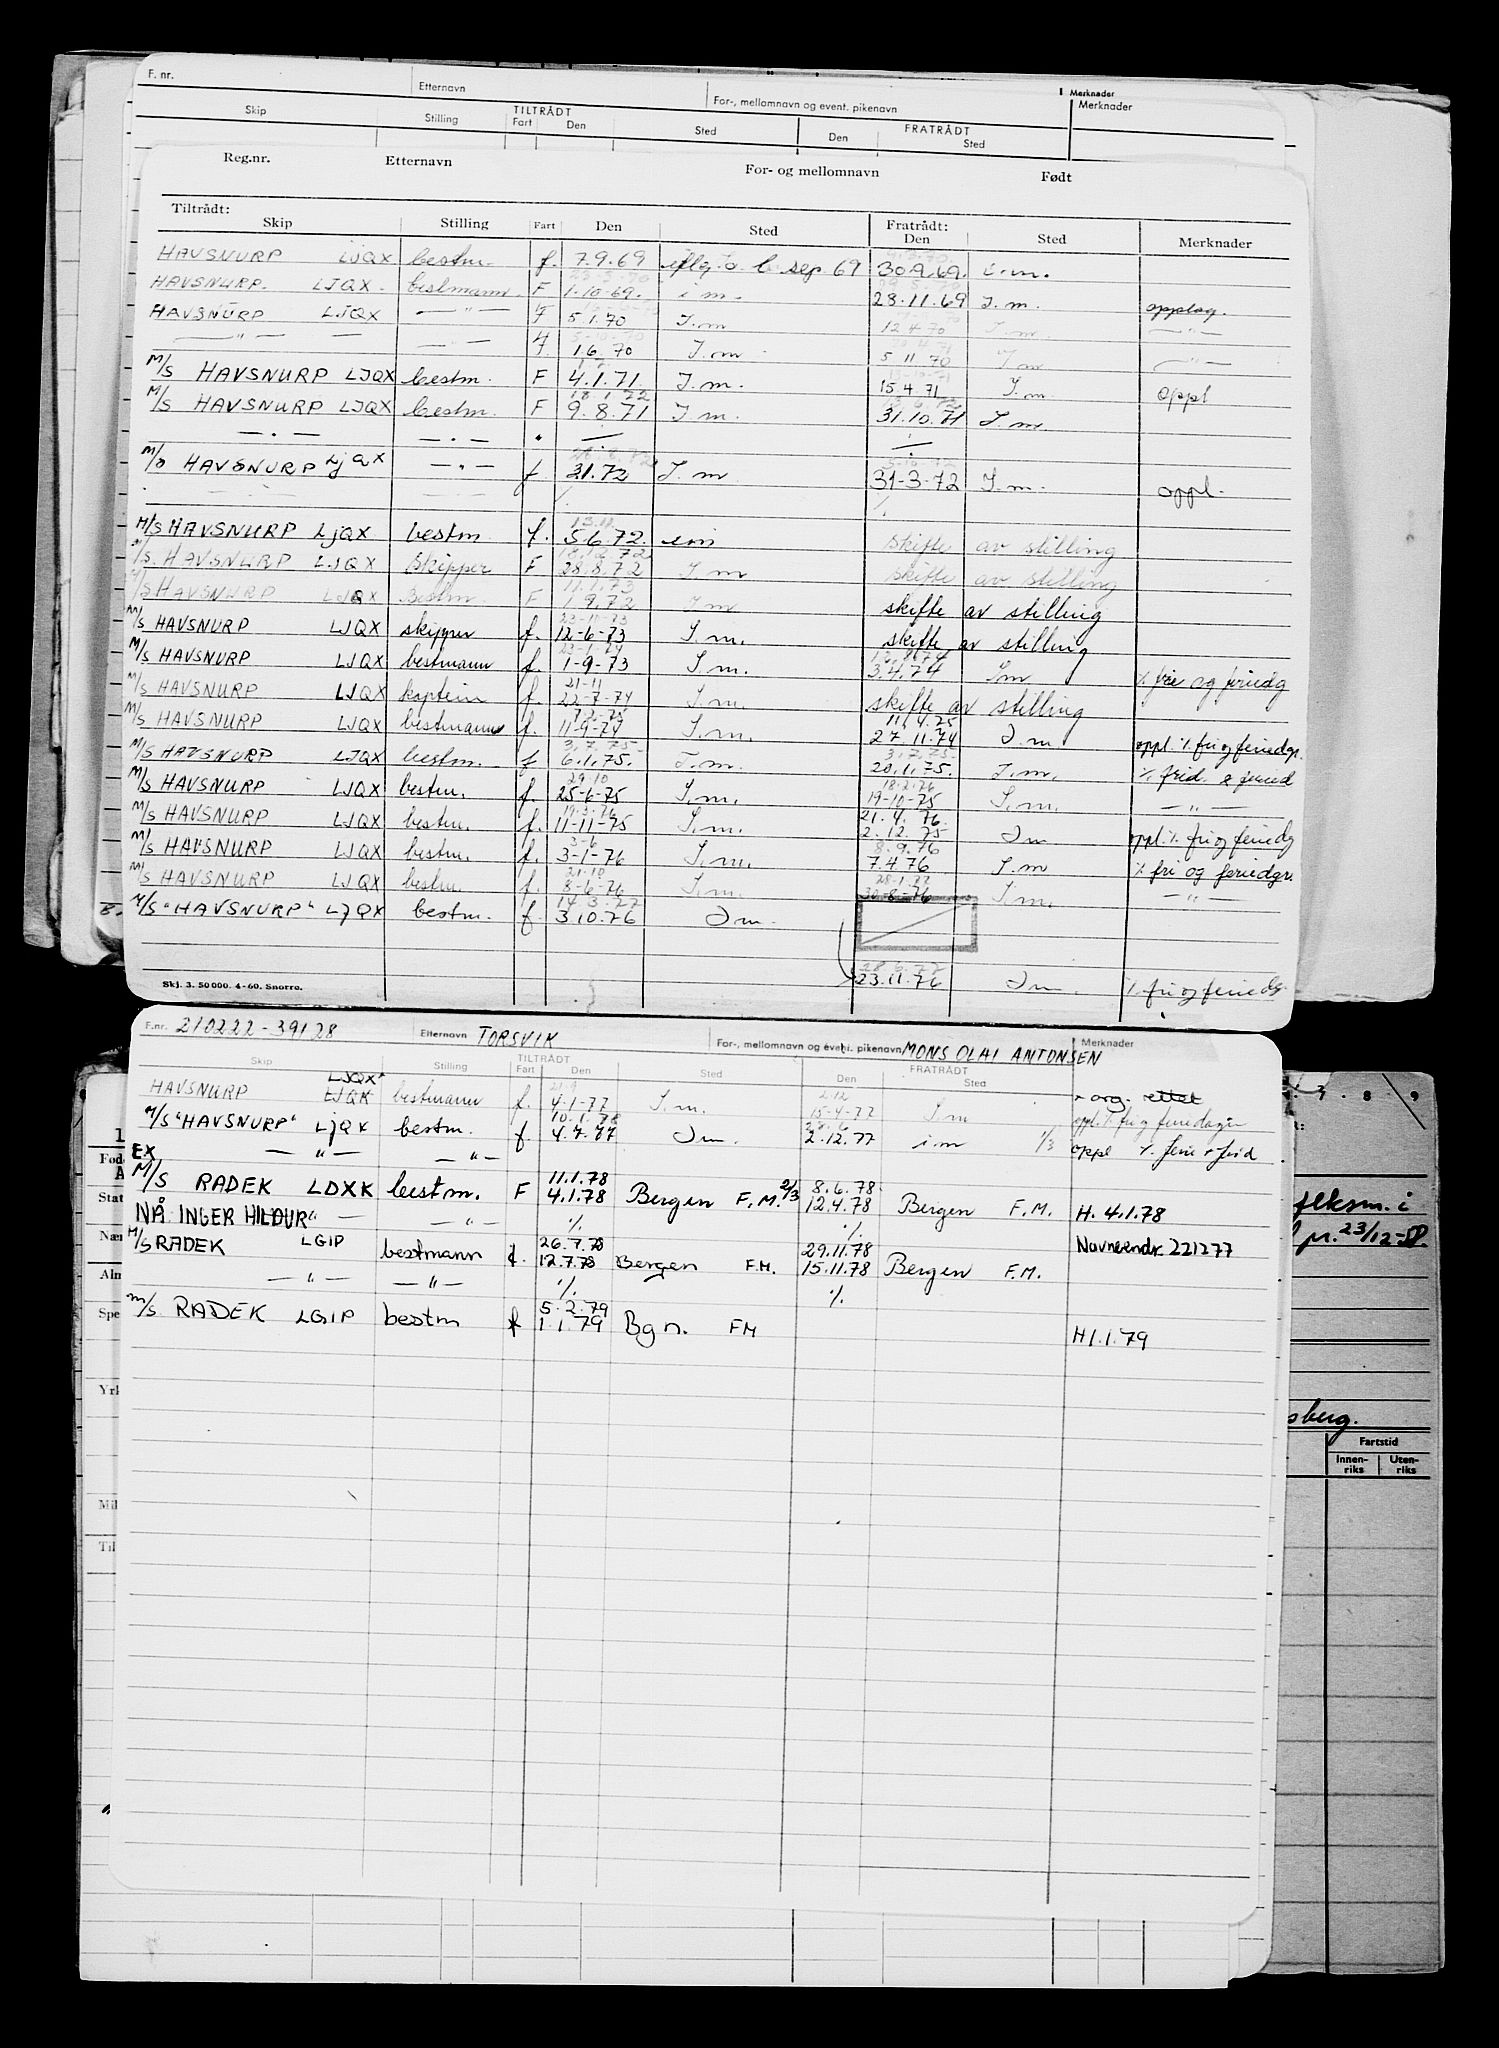 F. nr. Etternavn For-, mellomnavn og event. pikenavn Merknader
Skip Stilling TILTRÅDT Fart Den Sted Den FRATRÅDT Sted Merknader
Reg.nr. Etternavn For- og mellomnavn Født
Tiltrådt: Skip Stilling Fart Den Sted Fratrådt: Den Sted Merknader
HAVSNURP LJQX bestm. f. 7.9.69 sep 69 30.9.69. i.m.
HAVSNURP. LJQX. bestmann. F 1.10.69. i m. 28.11.69 I.m. opplag.
HAVSNURP LJQX —"— F 5.1.70 I.m 12 4 70 I.m —"—
—"— —"— F 1.6.70 I.m 5 11 70 I m —"—
M/S HAVSNURP LJQX bestm. F 4.1.71. I.m. 15.4.71 I.m. oppl
18.1.72
M/S HAVSNURP LJQX bestm. F 9.8.71 I m. 31.10.71 I m.
—.— —.— "
M/S HAVSNURP LJQX —"— f 3.1.72 I.m 31-3-72 I.m. oppl.
M/S HAVSNURP LJQX bestm f. 5.6.72. i m skifte av stilling
18.12.72
M/S. HAVSNURP LJQX Skipper F 28.8.72 I m skifte av stilling
11.1.73
M/S HAVSNURP LJQX Bestm F 1.9.72 I m skifte av stilling
23-10-73
M/S HAVSNURP LJQX skipper f. 12-6-73 I.m. skifte av stilling
23-1-74
M/S HAVSNURP LJQX bestmann f. 1-9-73 I.m. 3.4.74 I m % frie og feriedg
21-11
M/S HAVSNURP LJQX kaptein f. 22-7-74 I.m. skifte av stilling
11.4.75
M/S HAVSNURP LJQX bestmann f. 11-9-74 I.m. 27 11.74 I m. oppl. % fri og feriedgr.
3.7.75. 3.7.75.
M/S HAVSNURP LJQX bestm. f 6.1.75. I.m. 20.1.75. I.m. % frid. & feried
29.10 18.2.76
M/S HAVSNURP LJQX bestm. f. 25-6-75 I.m. 19-10-75 I.m. —"—
19.3.76 21.4.76.
M/S HAVSNURP LJQX bestm. f. 11-11-75 I.m. 2.12.75 I m oppl. % fri og feriedg
3-6 8.9.76
M/S HAVSNURP LJQX bestm. f. 3-1-76 I.m. 7.4 76 I.m % fri og feriedgr.
21.10 28.1.77
M/S HAVSNURP LJQX bestm. f. 8-6-76 I.m. 30-8-76 I.m. —"—
14.3.77
M/S "HAVSNURP" LJQX bestm. f. 3.10.76 I m.
28.6.77
23.11.76 I m. % fri og feriedg.
Skj. 3. 50 000. 4-60. Snorre.
F.nr. 210222-39128 Etternavn TORSVIK For-, mellomnavn og event. pikenavn MONS OLAI ANTONSEN Merknader
Skip Stilling TILTRÅDT Fart Den Sted Den FRATRÅDT Sted
LJQX 21.9 2.12 org. rettet
HAVSNURP LJQK bestmann f. 4-1-77 I.m. 15-4-77 I m oppl. % fri og feriedager
10.1.78 28.6
M/S "HAVSNURP" LJQX bestm. f 4.7.77 I m. 2.12.77 i m 1/3 oppl % ferie + frid
EX —"— —"—
11.1.78 8.6.78
M/S RADEK LDXK bestm. F 4.1.78 Bergen F.M. 2/3 12.4.78 Bergen F.M. H. 4.1.78
NÅ INGER HILDUR" — —"— % %
26.7.78 29.11.78 Navneendr. 221277
M/S RADEK LGIP bestmann f. 12.7.78 Bergen F.M. 15.11.78 Bergen F.M.
—"— —"— % %
5.2.79
M/S RADEK LGIP bestm f 1.1.79 Bgn. FM H1.1.79
1 Fød A Stat Nær Alm Spe Yrk Mil Til
7 8 9
flksm. i
pr. 23/12-58.
sberg.
Fartstid
Innen-riks Uten-riks